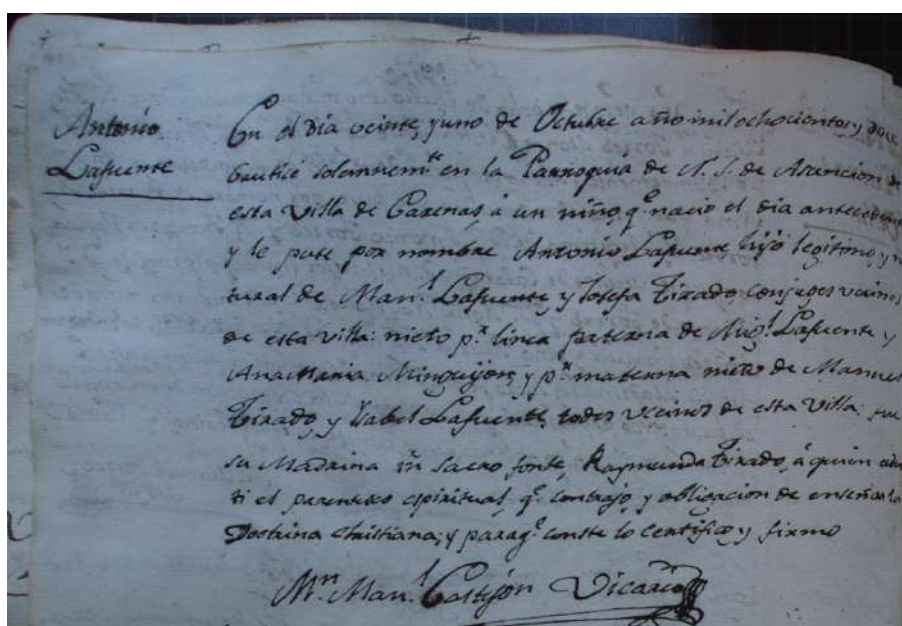 Antonio
Lafuente
En el dia veinte, y uno de Octubre año mil ochocientos, y doce
bautice solemnem.te en la Parroquia de N. S. de Asuncion de
esta Villa de Carenas, à un niño, q.e nacio el dia antecedente
y le puse por nombre Antonio Lafuente hijo legitimo, y na
tural de Man.l Lafuente, y Josefa Tirado, conjuges vecinos
de esta villa: nieto p.r linea paterna de Mig.l Lafuente, y
Ana Maria Minguijon, y p.r materna nieto de Manuel
Tirado, y Ysabel Lafuente, todos vecinos de esta Villa: fue
su Madrina in sacro fonte, Raymunda Tirado, à quien adver
ti el parentesco espiritual, q.e contrajo, y obligacion de enseñar la
Doctrina Christiana; y paraq.e conste lo certifico, y firmo
M.n Man.l Castejon Vicario